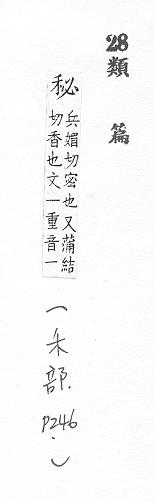 28類篇
秘 兵媚切密也又蒲結
切香也文一重音一
(禾部. p246.)